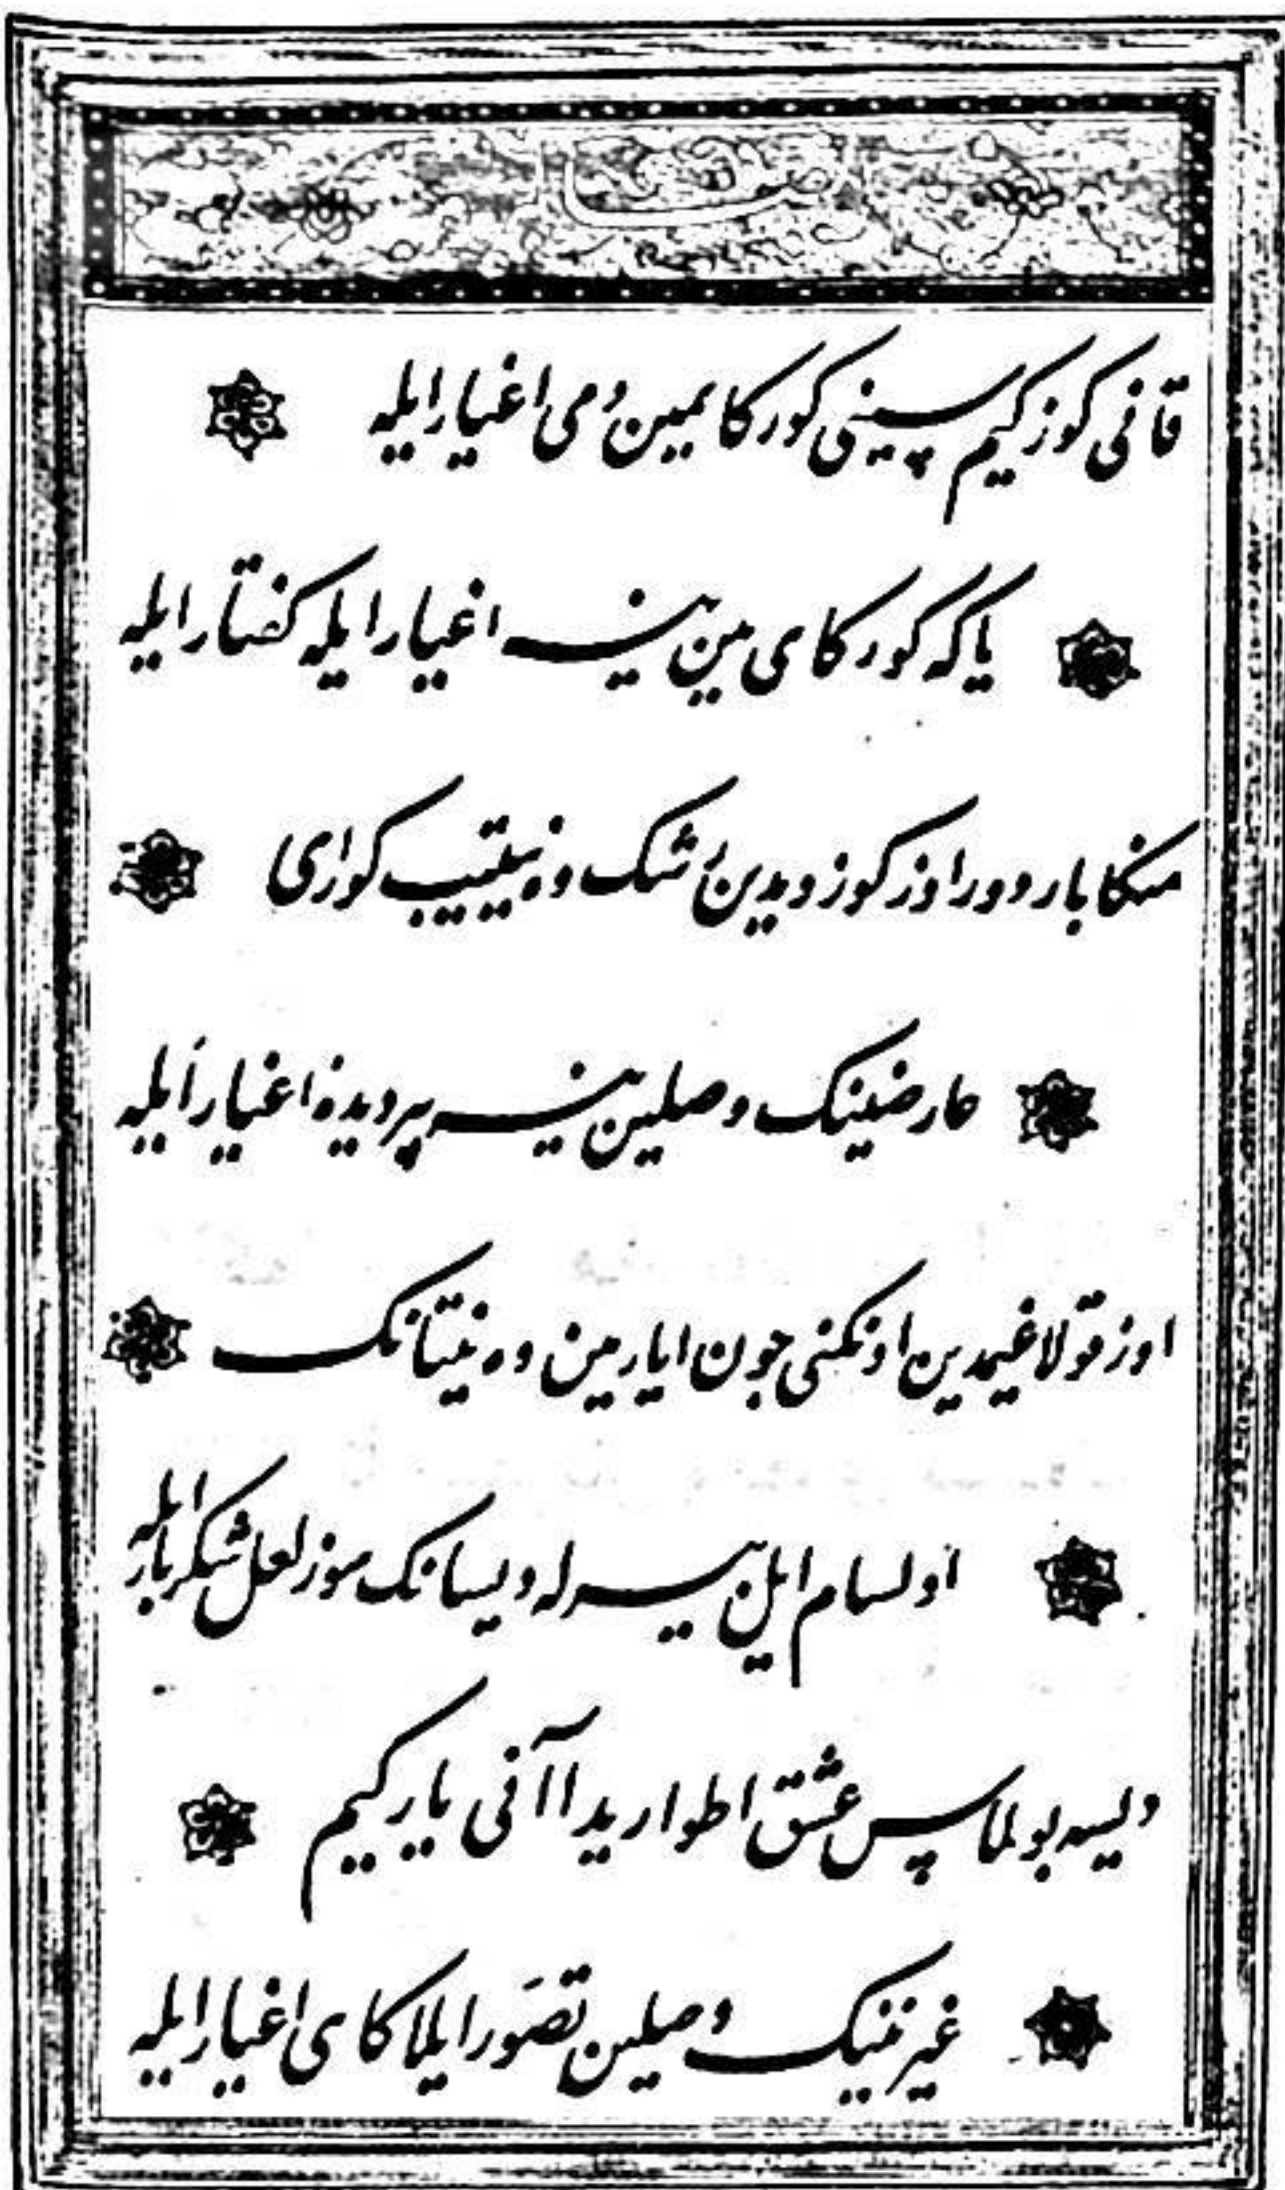 قانی کوز کیم سینی کورکای مین دمی اغیار ایله
یا که کورکای مین سینی اغیار ایله کفتار ایله
منکا بار دور اوز کوزومدین رشک وه نیتیب کورای
عارضینک وصلین سینی پر دیدهٔ اغیار ایله
اوز قولاغیمدین اونکنی چون ایارمین وه نیتانک
اولسام ایل بیرله دیسانک سوز لعل شکربار ایله
دیسه بولماس عشق اطواریدا آنی یار کیم
غیر نینک وصلین تصور ایلاکای اغیار ایله